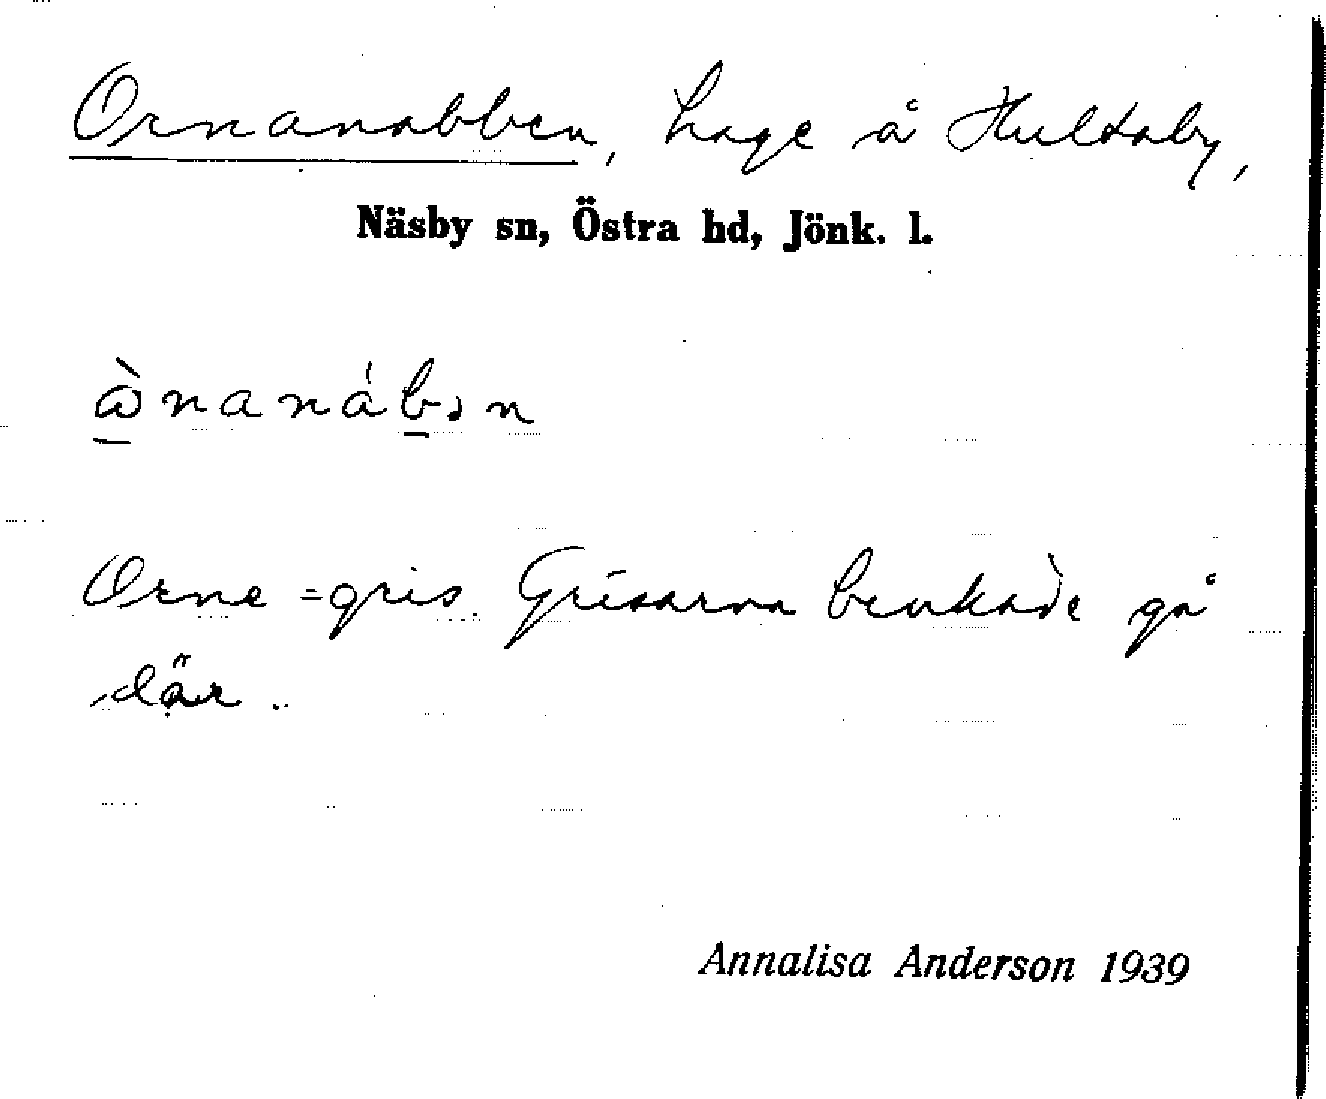 Ornanabben, hage å Hultaby,
Näsby sn, Östra hd, Jönk. l.
Orne = gris. Grisarna brukade gå
där.
Annalisa Anderson 1939